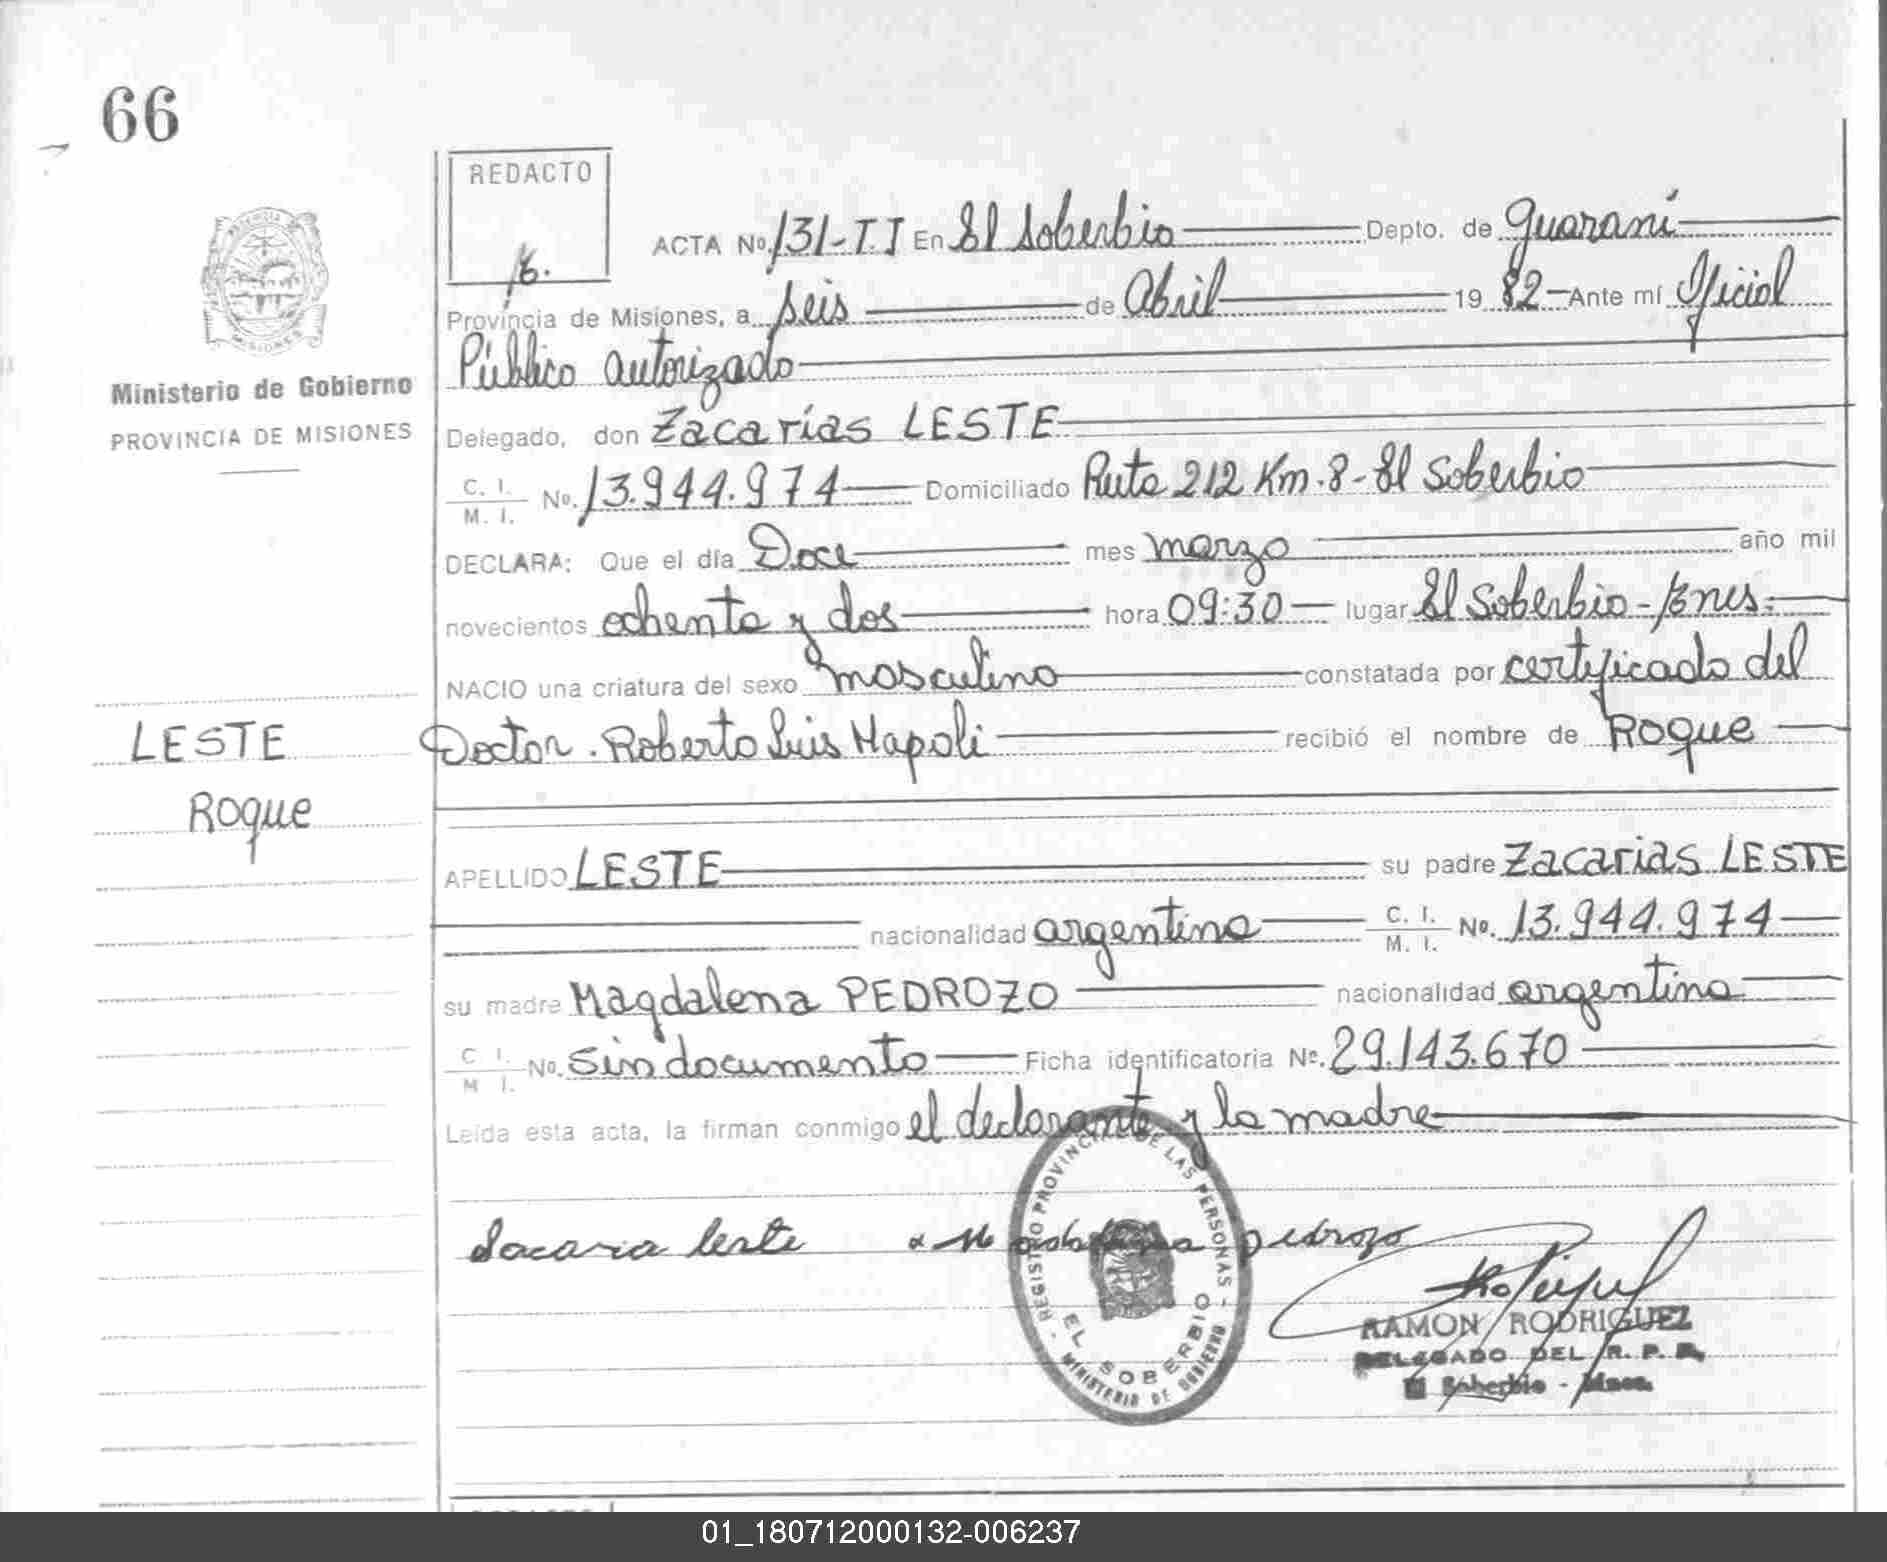 66
REDACTO
ACTA No. 131-II En El Soberbio Depto. de Guaraní
Provincia de Misiones, a seis de Abril 19 82 Ante mí Oficial
Público autorizado
Ministerio de Gobierno
PROVINCIA DE MISIONES
Delegado, don Zacarías LESTE
C. I.
M. I. No. 13.944.974 Domiciliado Ruta 212 Km. 8 - El Soberbio
DECLARA: Que el día Doce mes marzo año mil
novecientos ochenta y dos hora 09:30 lugar El Soberbio - Mnes.
NACIO una criatura del sexo masculino constatada por certificado del
Doctor. Roberto Luis Napoli recibió el nombre de Roque
LESTE
Roque
APELLIDO LESTE su padre Zacarias LESTE
nacionalidad argentina C. I.
M. I. No. 13.944.974
su madre Magdalena PEDROZO nacionalidad argentina
C. I.
M. I. No. Sin documento Ficha identificatoria No. 29.143.670
Leída esta acta, la firman conmigo el declarante y la madre
Sacaria leste pedrozo
REGISTRO PROVINCIAL DE LAS PERSONAS - MINISTERIO DE GOBIERNO -
EL SOBERBIO
RAMON RODRIGUEZ
DELEGADO DEL R. P. P.
El Soberbio - Mnes.
01_180712000132-006237